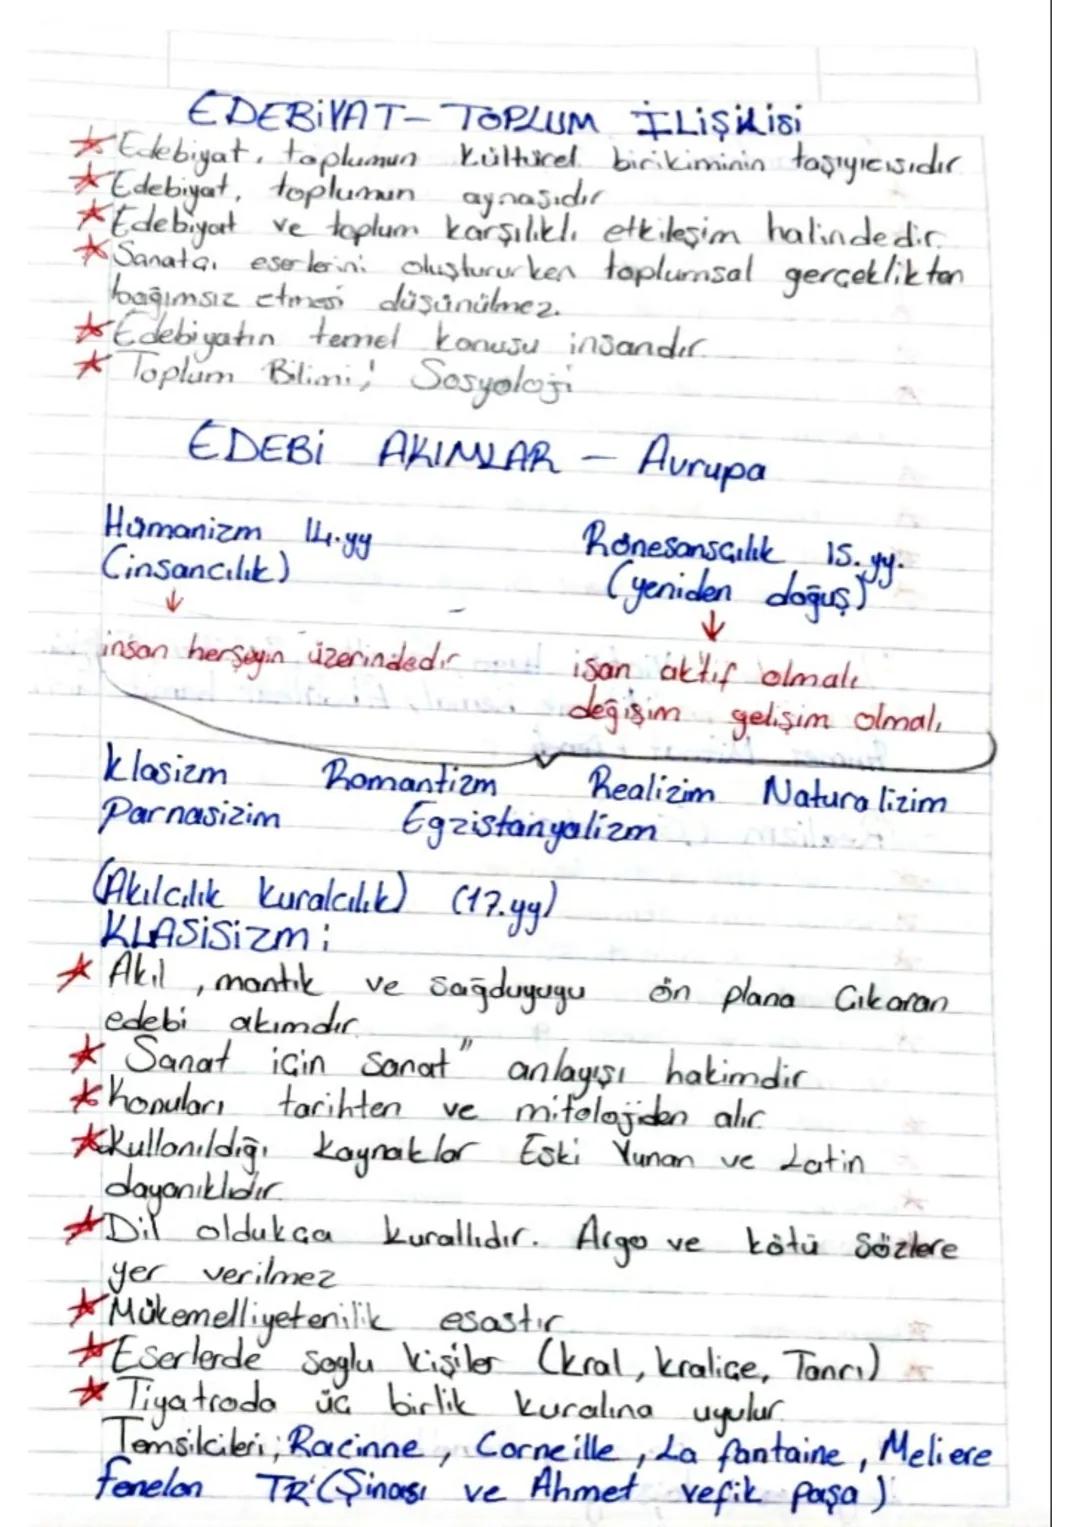 EDEBİYAT- TOPLUM İLİŞKİSİ
Edebiyat, toplumun kültürel birikiminin taşıyıcısıdır
Edebiyat, toplumun aynasıdır
Edebiyat ve toplum karşılıklı etkileşim halindedir.
Sanatçı eserlerini oluştururken toplumsal gerçeklikten
bağımsız etmesi düşünülmez.
Edebiyatın temel konusu insandır.
Toplum Bilimi; Sosyoloji
EDEBİ AKIMLAR - Avrupa
Hümanizm 14.yy
(insancılık)
Rönesansçılık 15.yy.
(yeniden doğuş)
insan herşeyin üzerindedir
işan aktif olmalı
değişim gelişim olmalı
Klasizm Romantizm Realizim Naturalizim
Parnasizim Egzistanyalizm
(Akılcılık kuralcılık) (17.yy)
KLASİSİZM:
Akıl, mantık ve sağduyuyu ön plana Çıkaran
edebi akımdır.
Sanat için sanat" anlayışı hakimdir
Konuları tarihten ve mitolojiden alır.
Kullanıldığı kaynaklar Eski Yunan ve Latin
dayanıklıdır.
Dil oldukça kurallıdır. Argo ve kötü sözlere
yer verilmez
Mükemelliyetenilik esastır.
Eserlerde soylu kişiler (kral, kraliçe, Tanrı)
Tiyatroda üç birlik kuralına uyulur.
Temsilcileri; Racinne, Corneille, La fontaine, Meliere
fenelon TR'(Şinasi ve Ahmet vefik paşa)